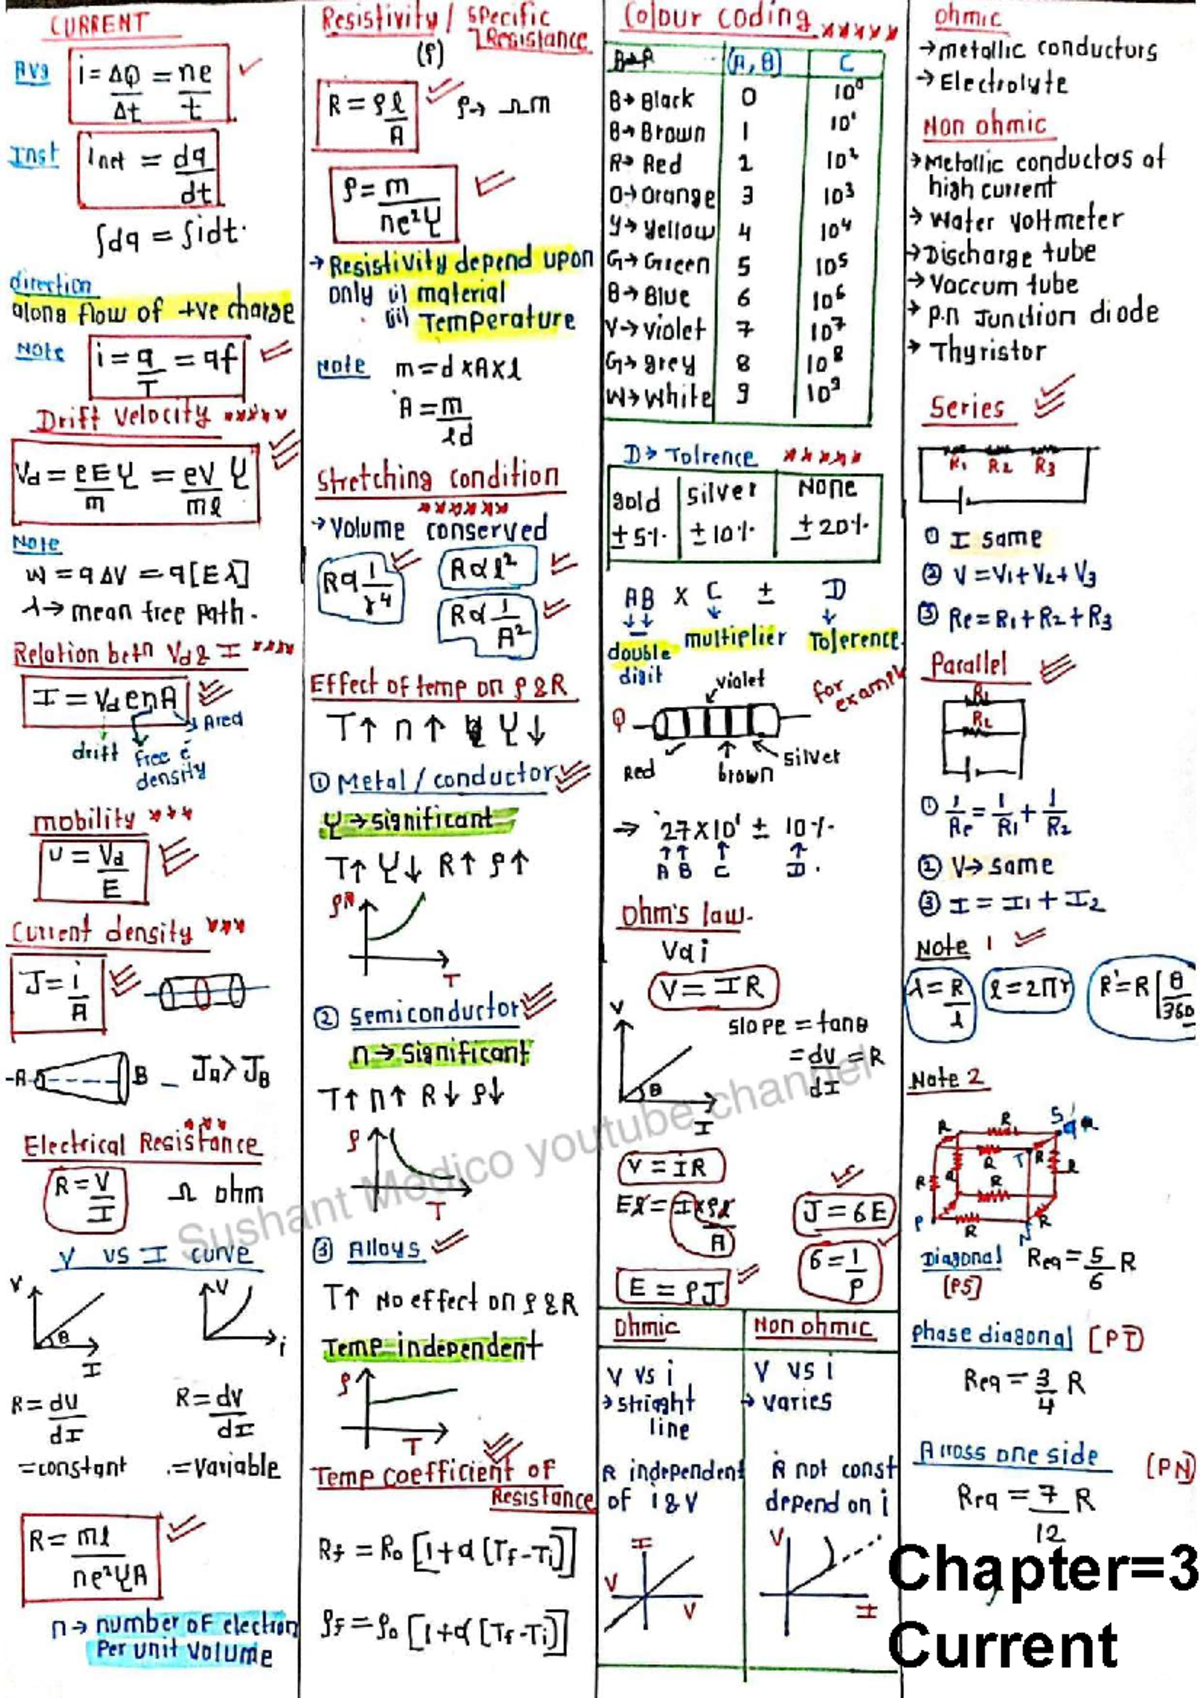 CURRENT
Avg
i = ΔQ/Δt = ne/t
Inst
inet = dq/dt
∫dq = ∫idt.
direction
along flow of +ve charge
Note
i = q/T = qf
Drift velocity *****
Vd = eEτ/m = eV/ml τ
Note
W = qΔV = q[Eλ]
λ→ mean free path.
Relation betn Vd & I ****
I = Vd enA
Area
drift free e⁻
density
mobility ***
u = Vd/E
Current density ***
J = i/A
A B _ JA > JB
Electrical Resistance
R = V/I Ω ohm
V vs I curve
V θ I V i
R = dV/dI R = dV/dI
= constant = variable
R = ml/ne²τA
n→ number of electron
Per unit volume
Resistivity / Specific
Resistance
(ρ)
R = ρl/A ρ→ Ωm
ρ = m/ne²τ
→ Resistivity depend upon
only (i) material
(ii) Temperature
Note m = d×A×l
A = m/ld
Stretching condition
******
→ volume conserved
R∝1/r⁴ R∝l²
R∝1/A²
Effect of temp on ρ & R
T↑ n↑ τ↓
① Metal / conductor
τ→ significant
T↑ τ↓ R↑ ρ↑
ρ T
② Semiconductor
n→ Significant
T↑ n↑ R↓ ρ↓
ρ T
③ Alloys
T↑ No effect on ρ & R
Temp independent
ρ T
Temp coefficient of
Resistance
Rf = R0 [1+α(Tf-Ti)]
ρf = ρ0 [1+α[Tf-Ti)]
Colour coding *****
(A, B) C
B→ Black 0 10⁰
B→ Brown 1 10¹
R→ Red 2 10²
O→ Orange 3 10³
Y→ Yellow 4 10⁴
G→ Green 5 10⁵
B→ Blue 6 10⁶
V→ violet 7 10⁷
G→ grey 8 10⁸
W→ White 9 10⁹
D→ Tolrence *****
gold silver None
±5% ±10% ±20%
AB × C ± D
double multiplier Tolerence.
digit
violet for
example
Q
Red brown silver
⇒ 27×10¹ ± 10%
A B C D.
Ohm's law.
V∝i
V = IR
V θ I
slope = tanθ
= dv/dI = R
V = iR
El = I×ρl/A
J = 6E
6 = 1/ρ
E = ρJ
Ohmic Non ohmic
V vs i V vs i
→ stright → varies
line
R independent R not const
of i & V depend on i
I V V V I
ohmic
→ metallic conductors
→ Electrolyte
Non ohmic
→ Metallic conductors at
high current
→ Water voltmeter
→ Discharge tube
→ Vaccum tube
→ P.n Junction diode
→ Thyristor
Series
R1 R2 R3
① I same
② V = V1+V2+V3
③ Re = R1+R2+R3
Parallel
R1
R2
① 1/Re = 1/R1 + 1/R2
② V→ same
③ I = I1 + I2
Note 1
λ = R/l l = 2πr R' = R[θ/360
Note 2
R R S R
R T R R
R R
P R N R
Diagonal Req = 5/6 R
[PS]
phase diagonal [PT]
Req = 3/4 R
Across one side [PN]
Req = 7/12 R
Chapter=3
Current
Sushant Medico youtube channel